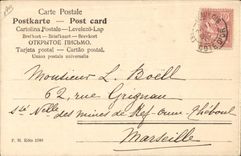 Carte Postale
Postkarte — Post card
Cartolina Postale — Levelező-Lap
Brefkort — Briefkaart — Brevkort
ОТКРЫТОЕ ПИСЬМО.
Tarjeta postal — Cartão postal.
Union postale universelle
Monsieur L. Boëll
62, rue Grignan
Sté Nelle des mines de Kef-oum-Théboul
Marseille